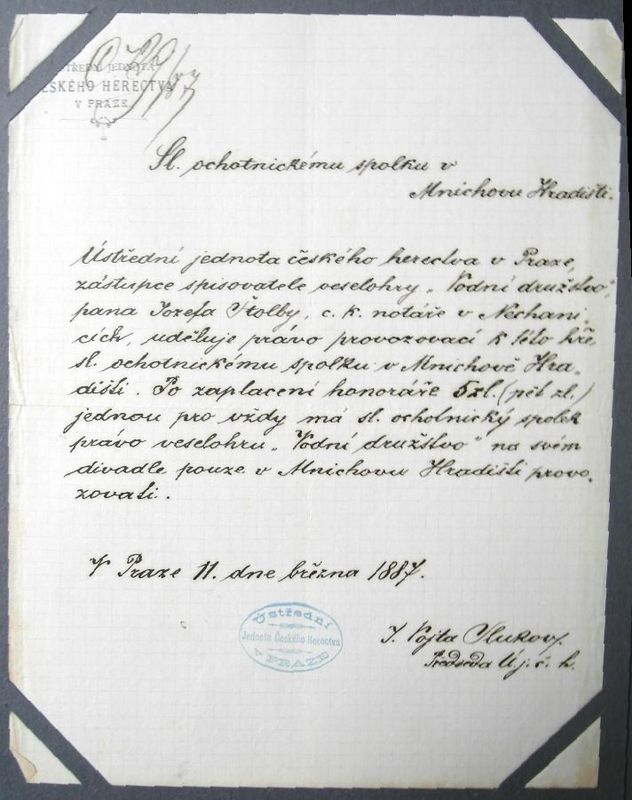 STŘEDNÍ JEDNOTA
ESKÉHO HERECTVA
V PRAZE
Sl. ochotnickému spolku v
Mnichovu Hradišti.
Ústřední jednota českého herectva v Praze,
zástupce spisovatele veselohry „Vodní družstvo",
pana Josefa Štolby, c. k. notáře v Nechani-
cích, uděluje právo provozovací k této hře
sl. ochotnickému spolku v Mnichově Hra-
dišti. Po zaplacení honoráře 5 zl. (pět zl.)
jednou pro vždy má sl. ochotnický spolek
právo veselohru „Vodní družstvo" na svém
divadle pouze v Mnichovu Hradišti provo-
zovati.
V Praze 11. dne března 1887.
Ústřední
Jednota Českého Herectva
v PRAZE
J. Vojta Slukov.
Předseda Ú. j. č. h.